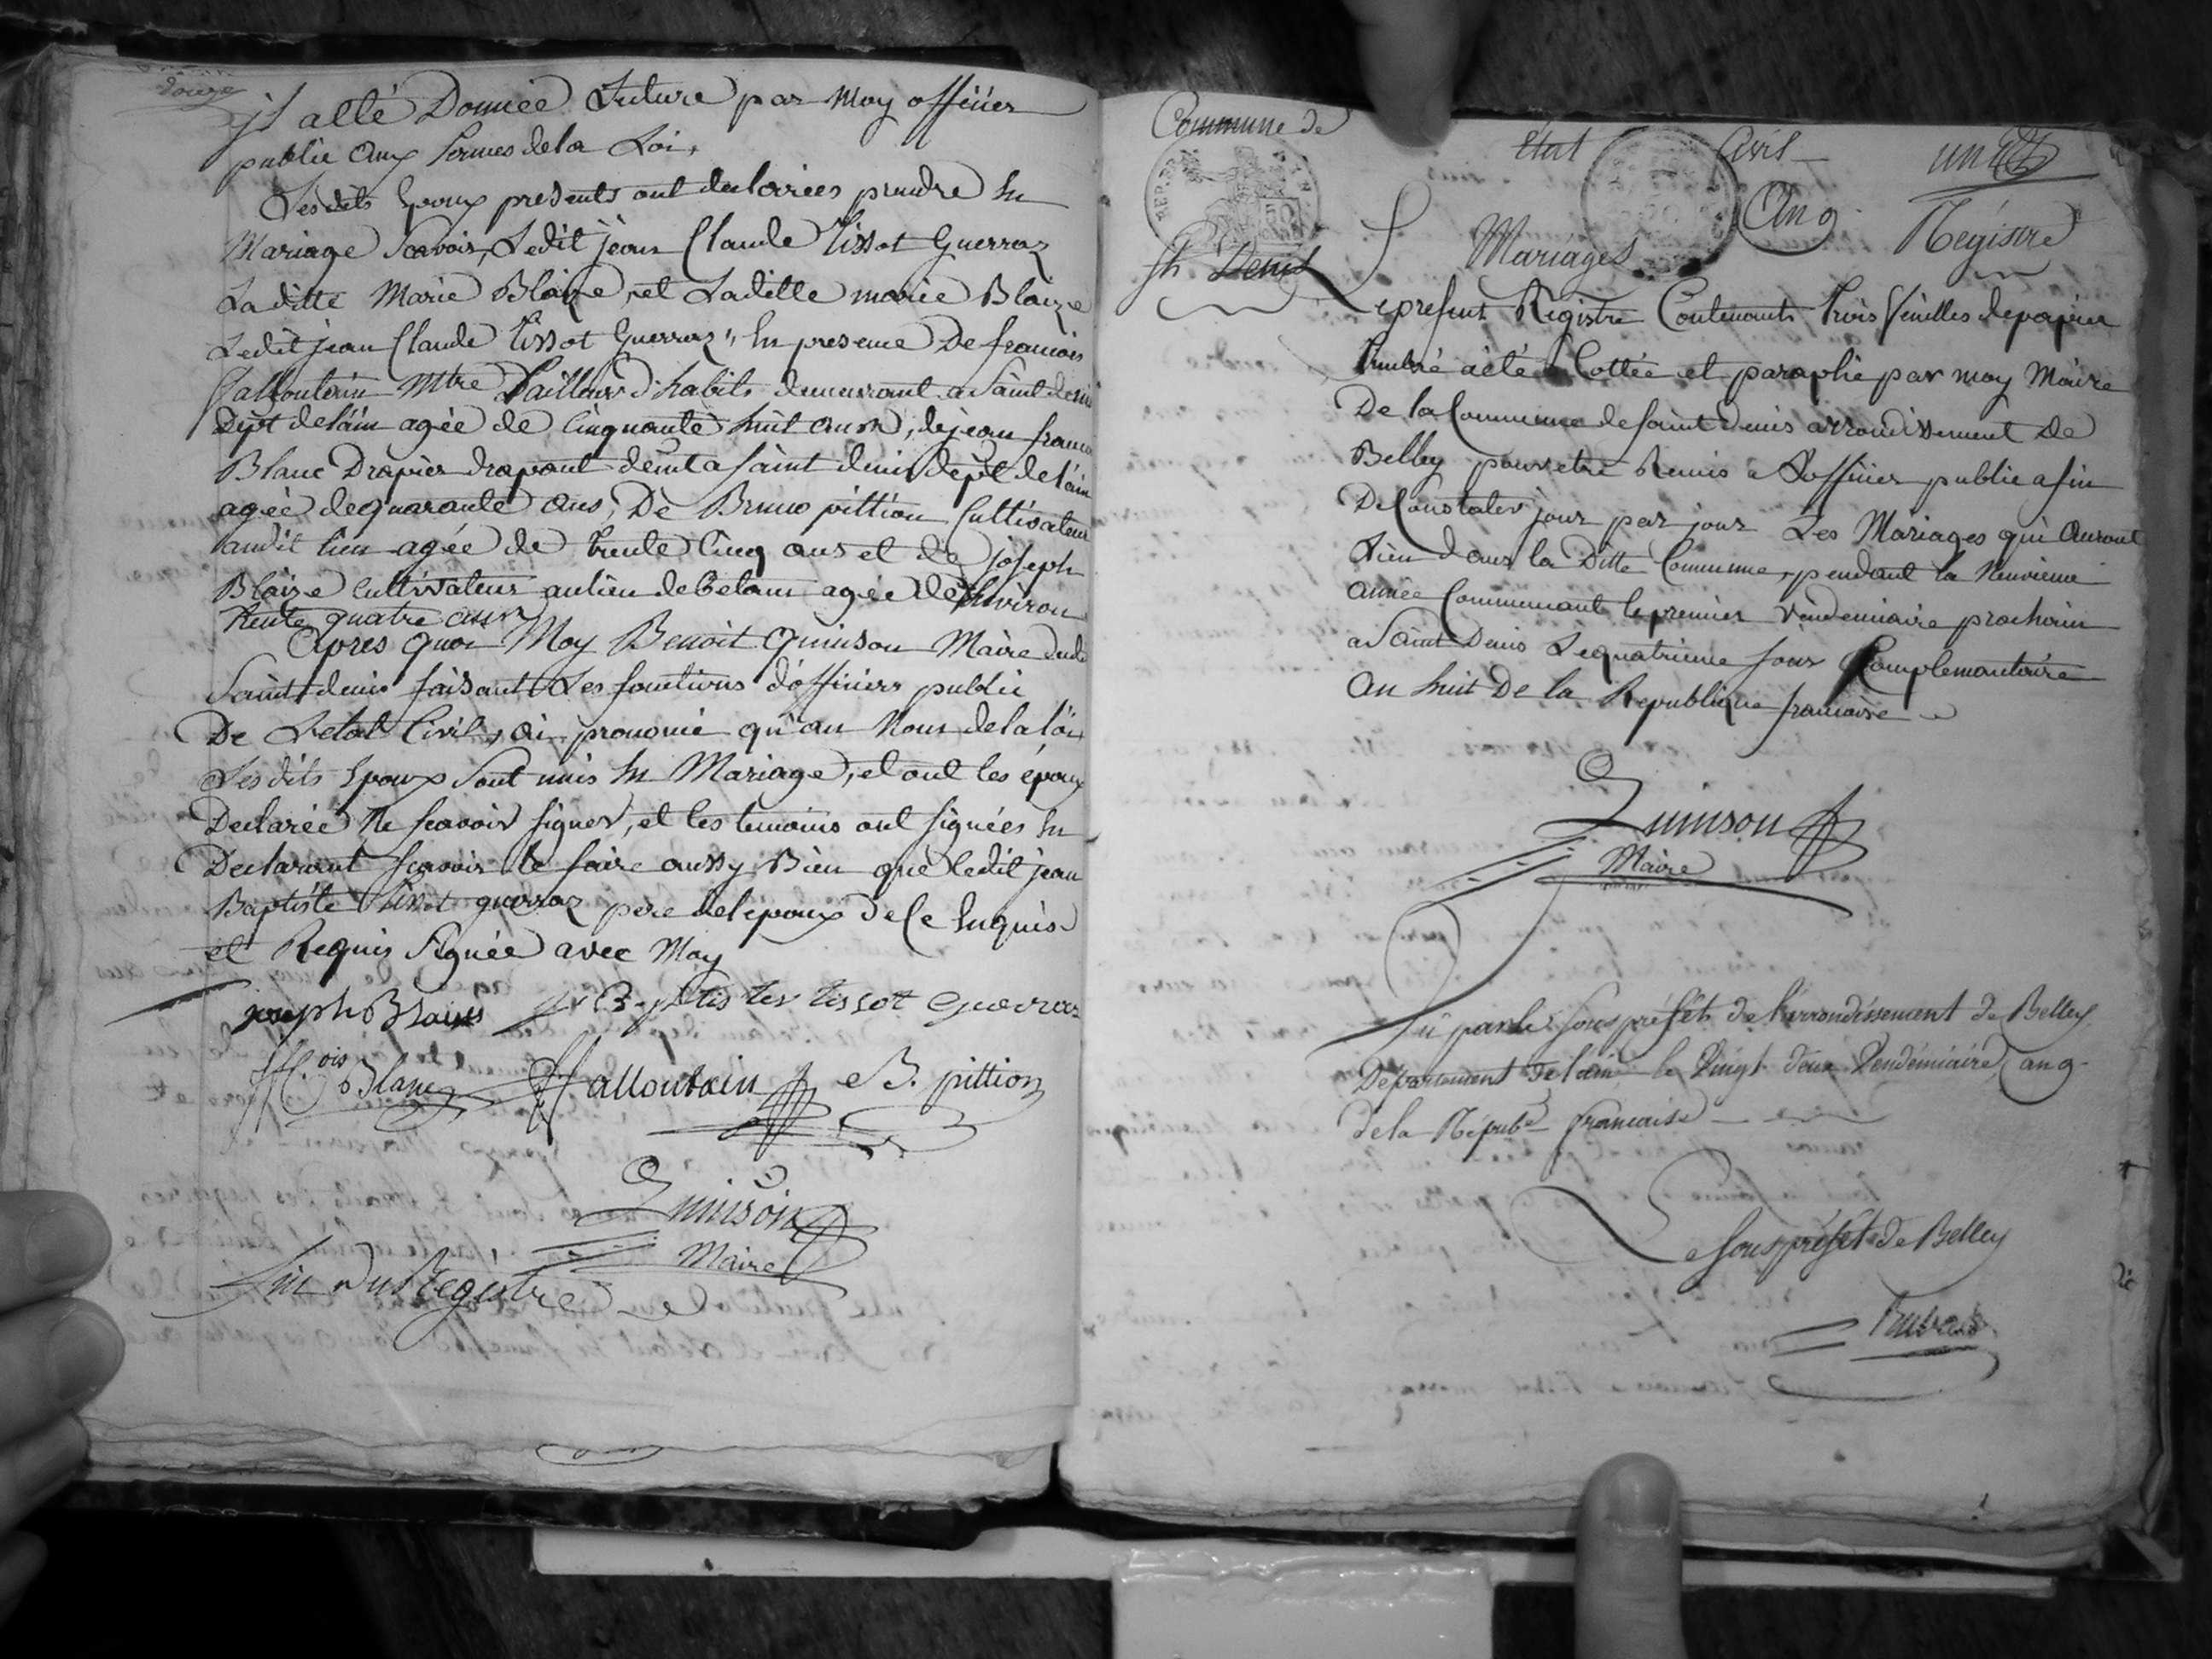 douze
il a été Donnée Lecture par Moy officier
public aux formes de la Loi,
Lesdits Epoux presents ont declarées prendre En
Mariage Scavoir, Ledit jean Claude Tissot Guerraz
Laditte Marie Blaize, et Laditte marie Blaize
Ledit jean Claude Tissot Guerraz, En presence De francois
Mtre Tailleur d'habits demeurant a Saint denis
Dept de l'ain agée de Cinquante huit ans, de jean francois
Blanc Drapier drapant demt a Saint denis dept de l'ain
agée de quarante ans, De Bruno pittion Cultivateur
audit lieu agée de trente Cinq ans et de joseph
Blaize Cultivateur au lieu de betam agée de Environ
trente quatre ans
Apres quoi Moy Benoit Quinson Maire dudt
Saint denis faisant Les fonctions d'officier public
De Letat Civil, ai prononcé qu'au Nom de la loi
Lesdits Epoux Sont unis En Mariage, et ont les époux
Declarée Ne scavoir signer, et les temoins ont signées En
Declarant scavoir le faire aussy Bien que ledit jean
Baptiste Tissot guerraz pere de l'epoux de Ce Enquis
et Requis Signée avec Moy
joseph Blaise
tissot Guerraz
fcois Blanc
B. pittion
Quinson
Maire
fin du Registre
Commune de
St Denis
Etat Civil
un
Mariages
An 9
Régistre
Le present Registre Contenant trois feuilles de papier
timbré a été Cottée et paraphé par moy Maire
De la Commune de saint denis arrondissement De
Belley pour etre Remis a L'officier public afin
De Constater jour par jour Les Mariages qui auront
Lieu dans la Ditte Commune, pendant la Neuvieme
année Commencant le premier Vendemiaire prochain
a Saint Denis Le quatrieme jour Complemantaire
an huit De la Republique francaise
Quinson
Maire
par le sous préfet de l'arrondissement de Belley
Département de l'ain le Vingt deux Vendémiaire an 9
de la Répube française
Le sous préfet de Belley